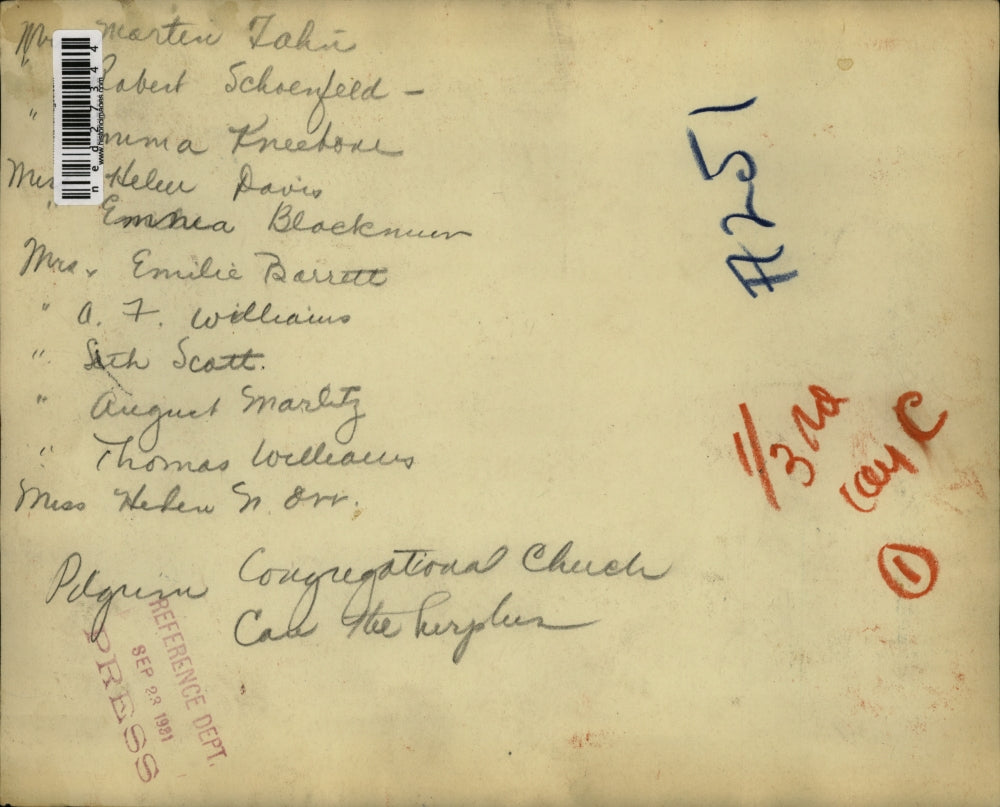 Marten Jahn
Robert Schoenfeld –
" Emma Kneebone
Miss Helen Davis
" Emma Blackmun
Mrs. Emilie Barrett
" A. F. Williams
" Seth Scott.
" August Marlitz
" Thomas Williams
Miss Helen N. Orr.
Pilgrim Congregational Church
Can the Surplus
A251
1/3rd
C
1
REFERENCE DEPT.
SEP 23 1981
PRESS
ned27344
www.historicimages.com